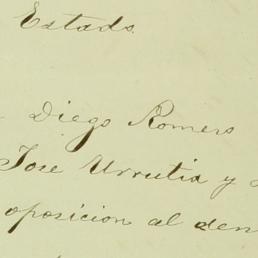 Estado
Diego Romero
Jose Urrutia y
oposicion al den